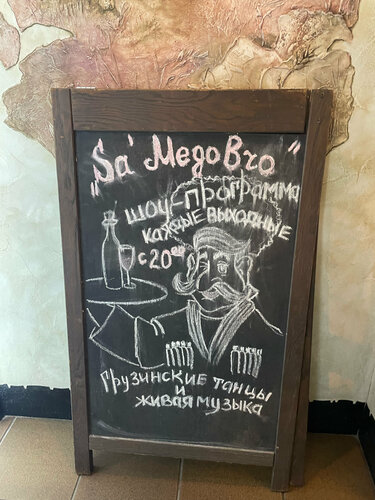 „Sa' MegoBro"
шоу-программа
каждые выходные
с 20⁰⁰
Грузинские танцы
и
живая музыка